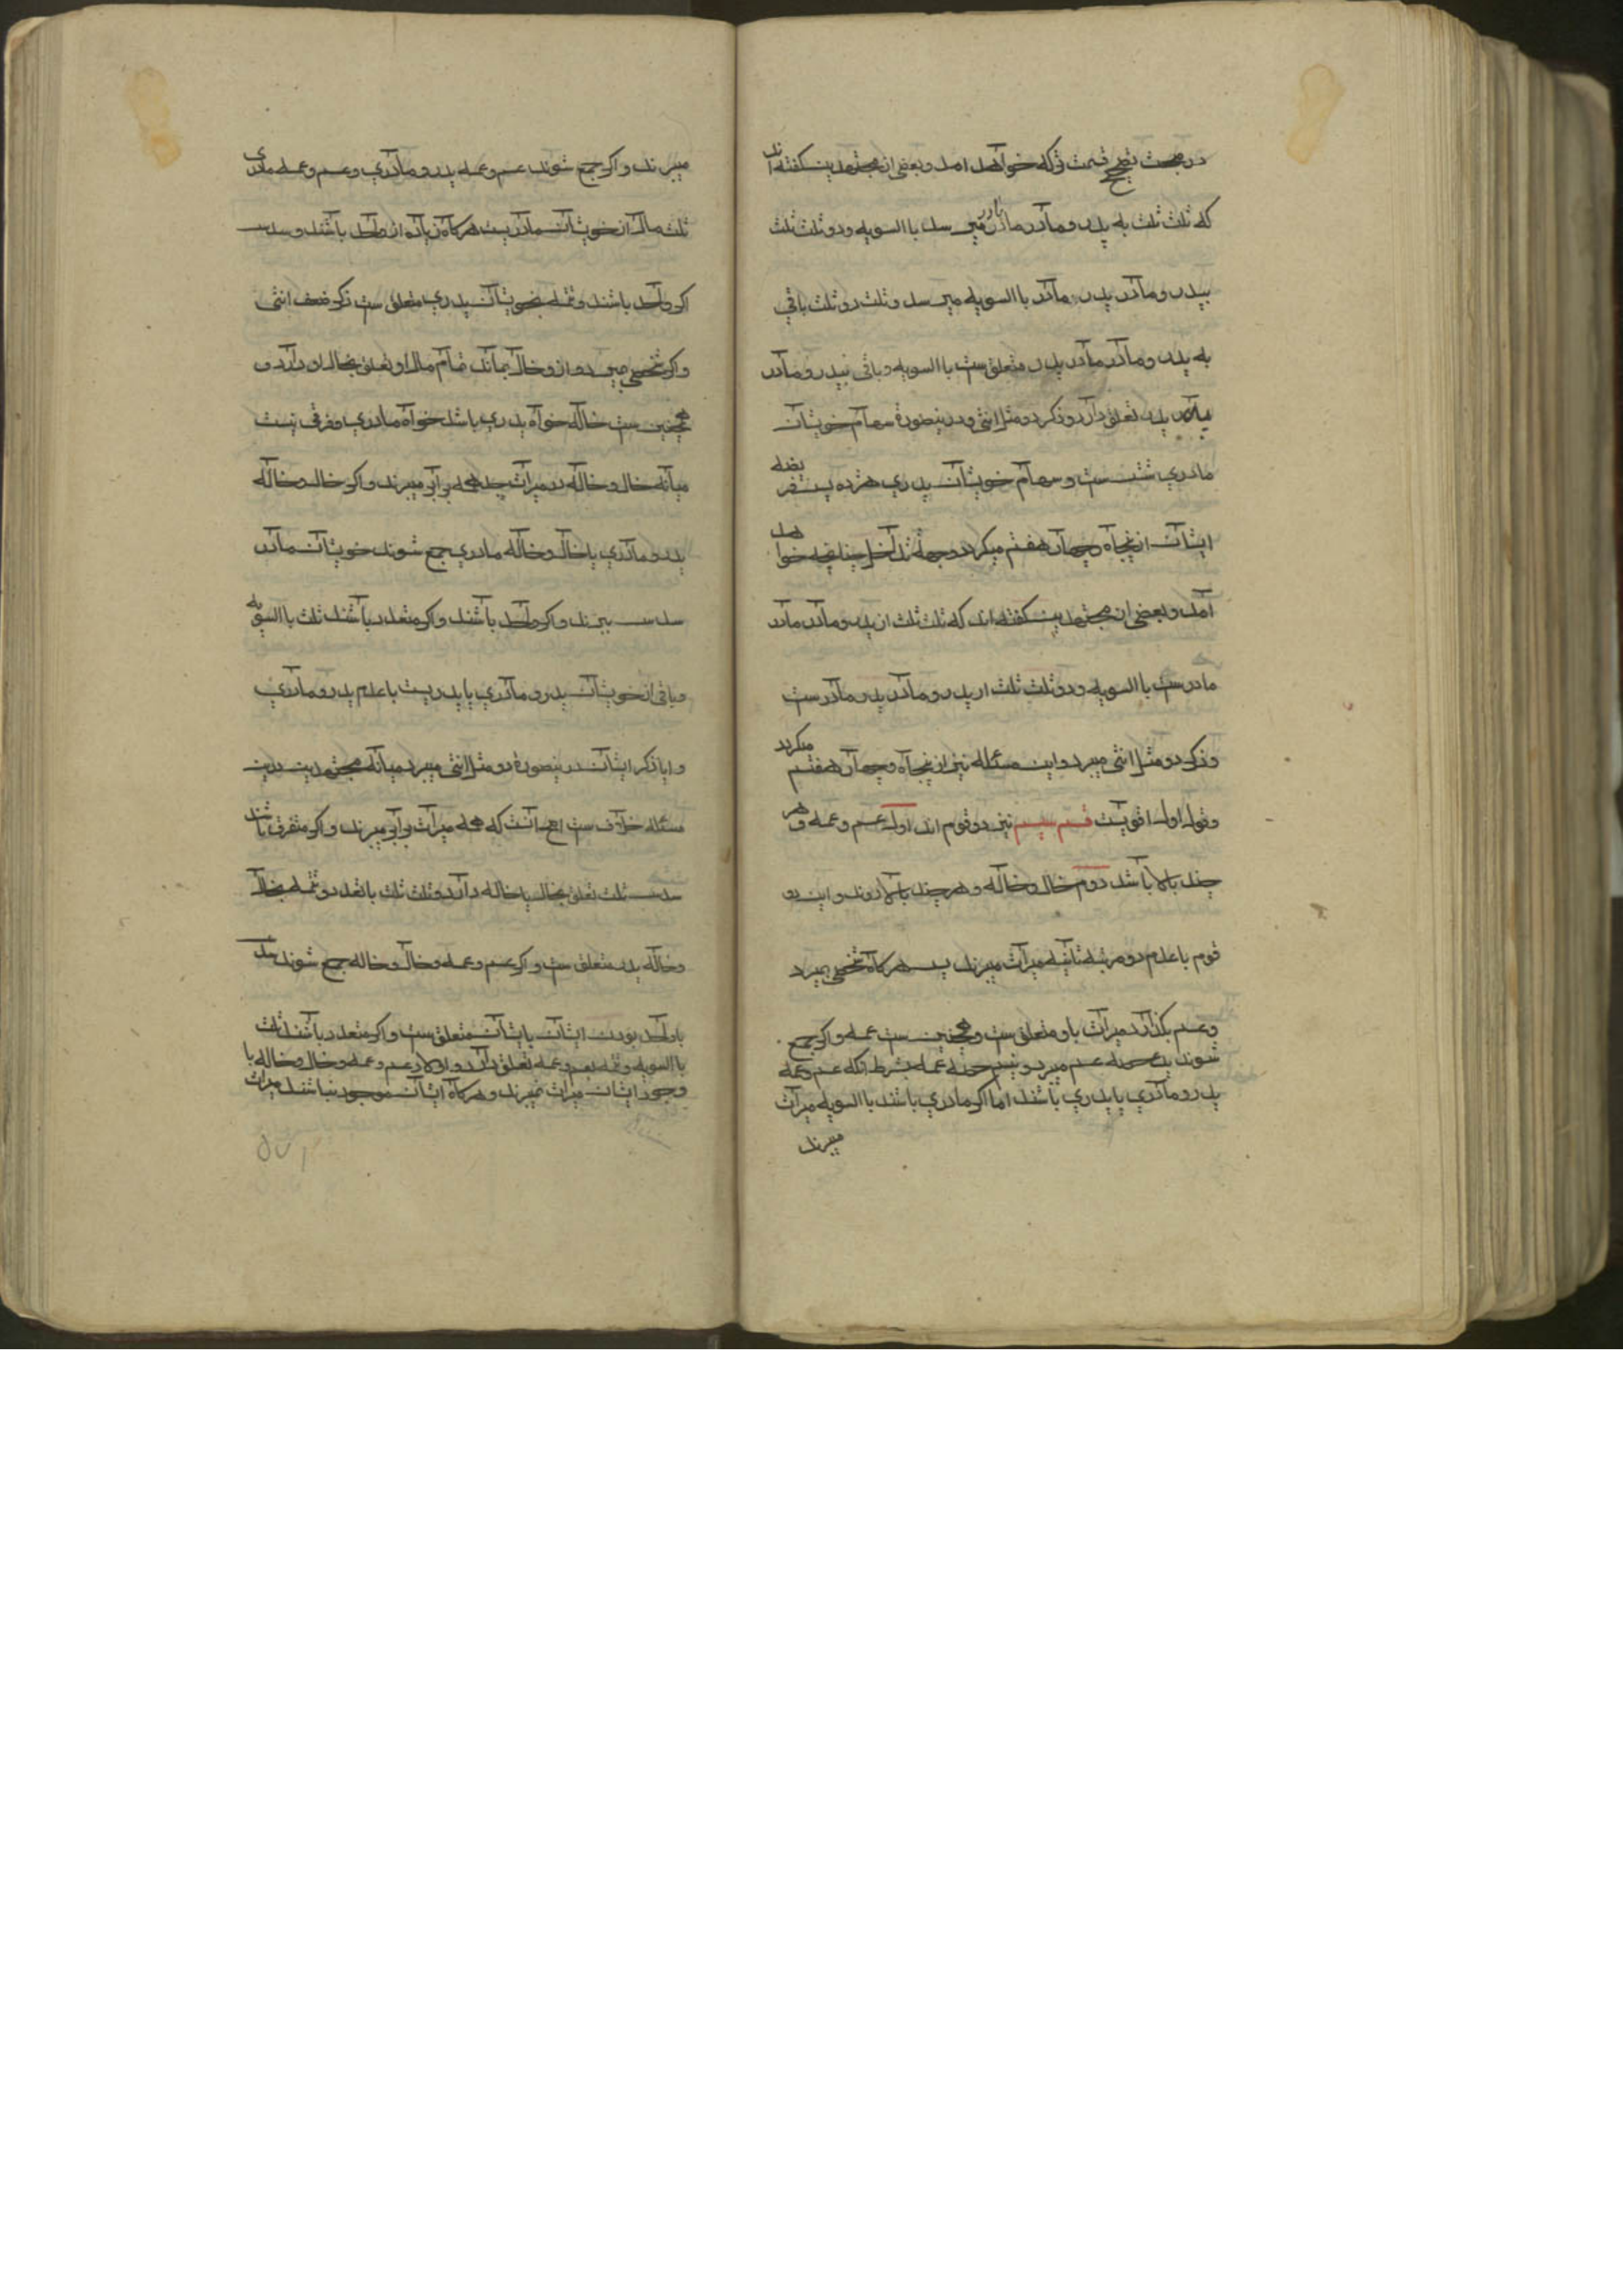 در مبحث تصحیح قسمت ترکه خواهد امد و بعضی از مجتهدین کفته اند
که ثلث ثلث به پدر و مادر مادر مادر میرسد با السویه و دو ثلث ثلث
بپدر و مادر پدر مادر با السویه میرسد و ثلث دو ثلث باقی
به پدر و مادر مادر پدر متعلق ست با السویه و باقی بپدر و مادر
پدر تعلق دارد و ذکر دو مثل انثی و درینصورة سهام خویشان
مادری شش ست و سهام خویشان پدری هژده پس فریضه
ایشان از پنجاه و چهار هفتم میکردد چنانچه خواهد
آمد و بعضی از مجتهدین کفته اند که ثلث ثلث از پدر و مادر مادر
مادرست با السویه و دو ثلث ثلث از پدر و مادر پدر مادرست
و ذکر دو مثل انثی میبرد و این مسئله نیز از پنجاه و چهار هفتم میکردد
و قول اول اقویست قسم سیم نیز دو قوم اند اول عم و عمه و هر
چند بالا باشد دوم خال و خاله و هر چند بالا روند و این دو
قوم با عدم دو مرتبه ثانیه میراث میبرند پس هر کاه شخصی بمیرد
و عم بکذارد میراث باو متعلق ست و همچنین ست عمه و اکر جمع
شوند عم میبرد و نیم حصه عمه بشرط انکه عم و عمه
پدر و مادری یا پدری باشند اما اکر مادری باشند با السویه میراث
میبرند
میبرند و اکر جمع شوند عم و عمه پدر و مادری و عم و عمه مادری
ثلث مال از خویشان مادریست هر کاه زیاده از واحد باشند و سدس
اکر واحد باشند و تتمه بخویشان پدری متعلق ست ذکر ضعف انثی
و اکر شخصی میرد و ازو خال بماند تمام مال او تعلق بخال او دارد و
همچنین ست خاله خواه پدری باشد خواه مادری و فرقی نیست
میانه خال و خاله در میراث چه همه برابر میبرند و اکر خال و خاله
پدر و مادری با خال و خاله مادری جمع شوند خویشان مادر
سدس میبرند و اکر واحد باشند و اکر متعدد باشند ثلث با السویه
و باقی از خویشان پدر و مادری یا پدریست با عدم پدر و مادری
و ایا ذکر ایشان درینصورة دو مثل انثی میبرد میانه مجتهدین درین
مسئله خلاف ست اصح انست که همه میراث برابر میبرند و اکر متفرق باشند
سدس ثلث تعلق بخال یا خاله دارد و ثلث ثلث با تعدد و تتمه بخال
و خاله پدر متعلق ست و اکر عم و عمه و خال و خاله جمع شوند سدس
با واحد بودن ایشان بایشان متعلق ست و اکر متعدد باشند ثلث
با السویه و تتمه بعم و عمه تعلق دارد و اولاد عم و عمه و خال و خاله با
وجود ایشان میراث نمیبرند و هر کاه ایشان موجود نباشند میراث